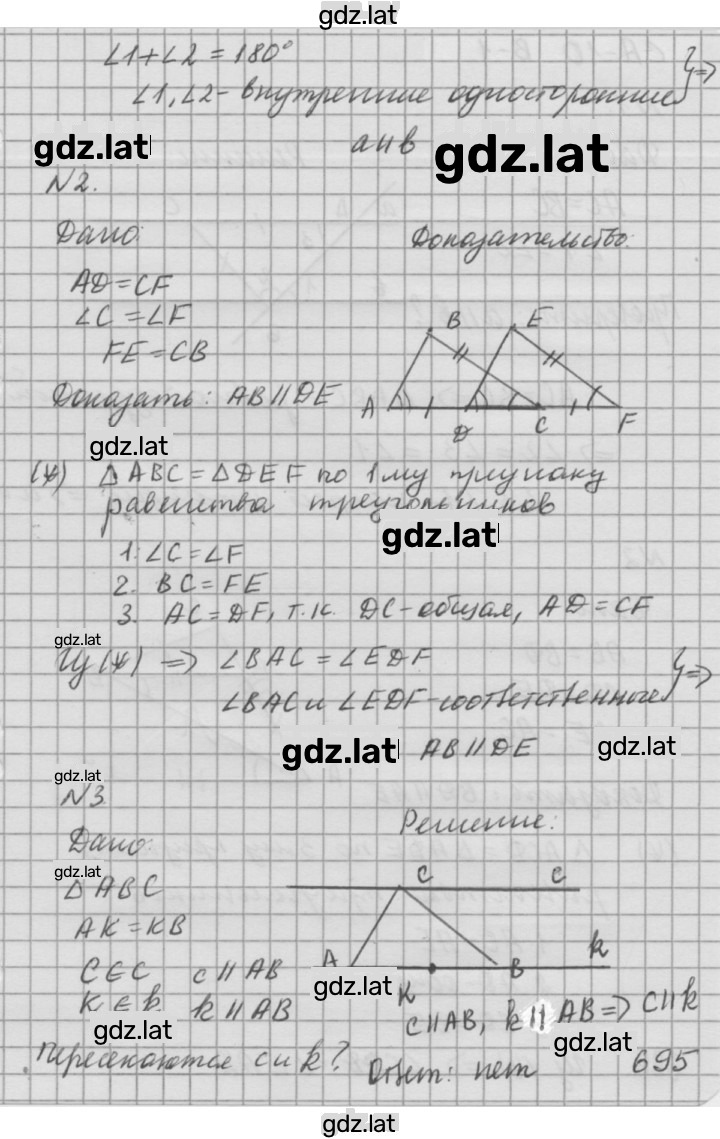 gdz.lat
∠1+∠2=180°
∠1,∠2- внутренние односторонние} =>
a∥b
gdz.lat
gdz.lat
N2.
Дано:
Доказательство:
AD=CF
∠C=∠F
FE=CB
Доказать: AB∥DE
B E
A D C F
gdz.lat
(*) △ABC=△DEF по 1му признаку
равенства треугольников
gdz.lat
1. ∠C=∠F
2. BC=FE
3. AC=DF, т.к. DC-общая, AD=CF
gdz.lat
Из (*) => ∠BAC=∠EDF
∠BAC и ∠EDF-соответственные} =>
gdz.lat
AB∥DE
gdz.lat
gdz.lat
N3
Дано:
Решение:
gdz.lat
△ABC
C c
AK=KB
A B k
K
C∈c c∥AB
gdz.lat
K∈k k∥AB
c∥AB, k∥AB=> c∥k
gdz.lat
gdz.lat
пересекаются c и k?
Ответ: нет
695
gdz.lat